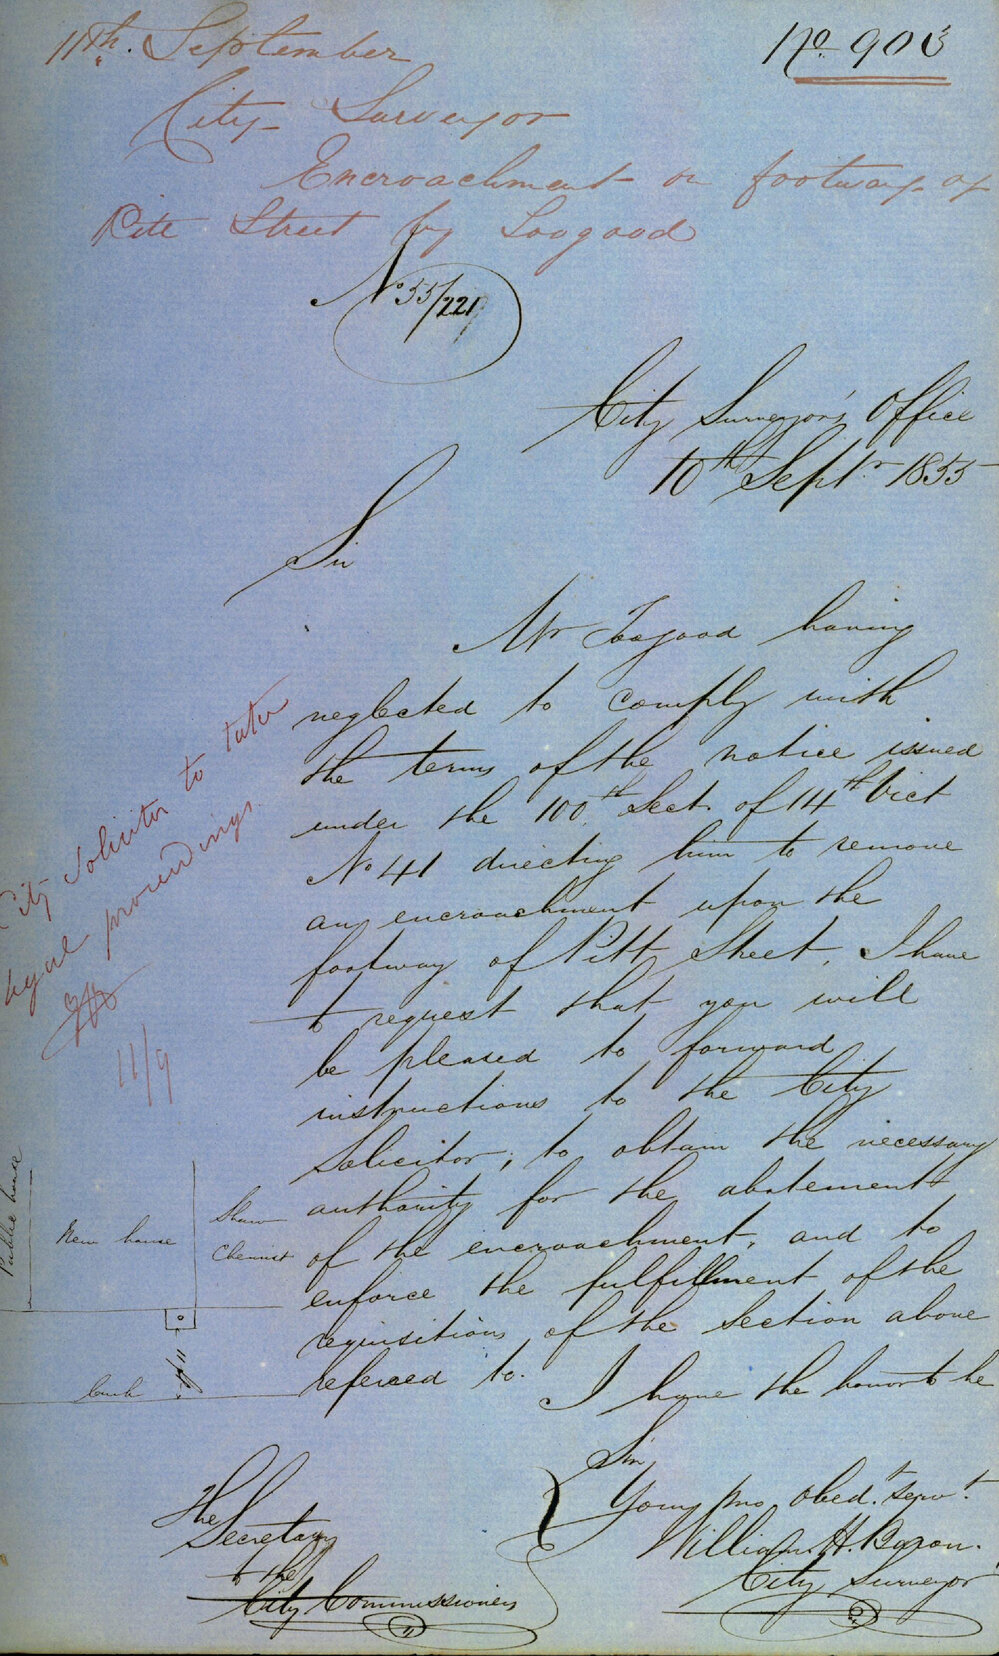 11th. September
No 903
City Surveyor
Encroachment on footway of
Pitt Street by Toogood
No 55/221
City Surveyor's Office
10th Sept. 1855
Sir
Mr Toogood having
neglected to comply with
the terms of the notice issued
under the 100th Sect. of 14th Vict
No 41 directing him to remove
any encroachment upon the
footway of Pitt Street, I have
to request that you will
be pleased to forward
instructions to the City
Solicitor, to obtain the necessary
authority for the abatement
of the encroachment, and to
enforce the fulfillment of the
requisitions of the section above
referred to.
I have the honor to be
Sir
Your mo. obed.t serv.t
William H. Baron.
City Surveyor
The
Secretary
to the
City Commissioners
City Solicitor to take
legal proceedings.
11/9
Public house
New house
Shaw
Chemist
Curb